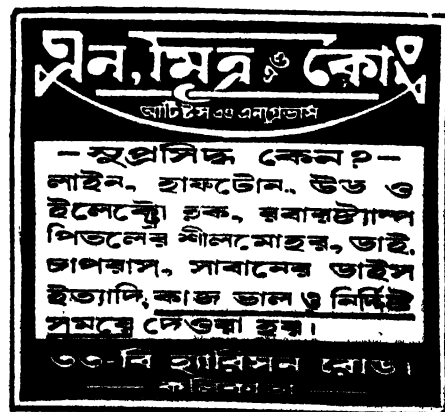 এন, মিত্র এণ্ড কোং
আর্টিষ্টস এণ্ড এনগ্রেভার্স
— সুপ্রসিদ্ধ কেন? —
লাইন, হাফটোন, উড ও
ইলেক্ট্রো ব্লক, রবারষ্ট্যাম্প
পিতলের শীলমোহর, ডাই,
চাপরাস, সাবানের ডাইস
ইত্যাদি, কাজ ভাল ও নির্দ্দিষ্ট
সময়ে দেওয়া হয়।
৩৩-বি হ্যারিসন রোড।
কলিকাতা